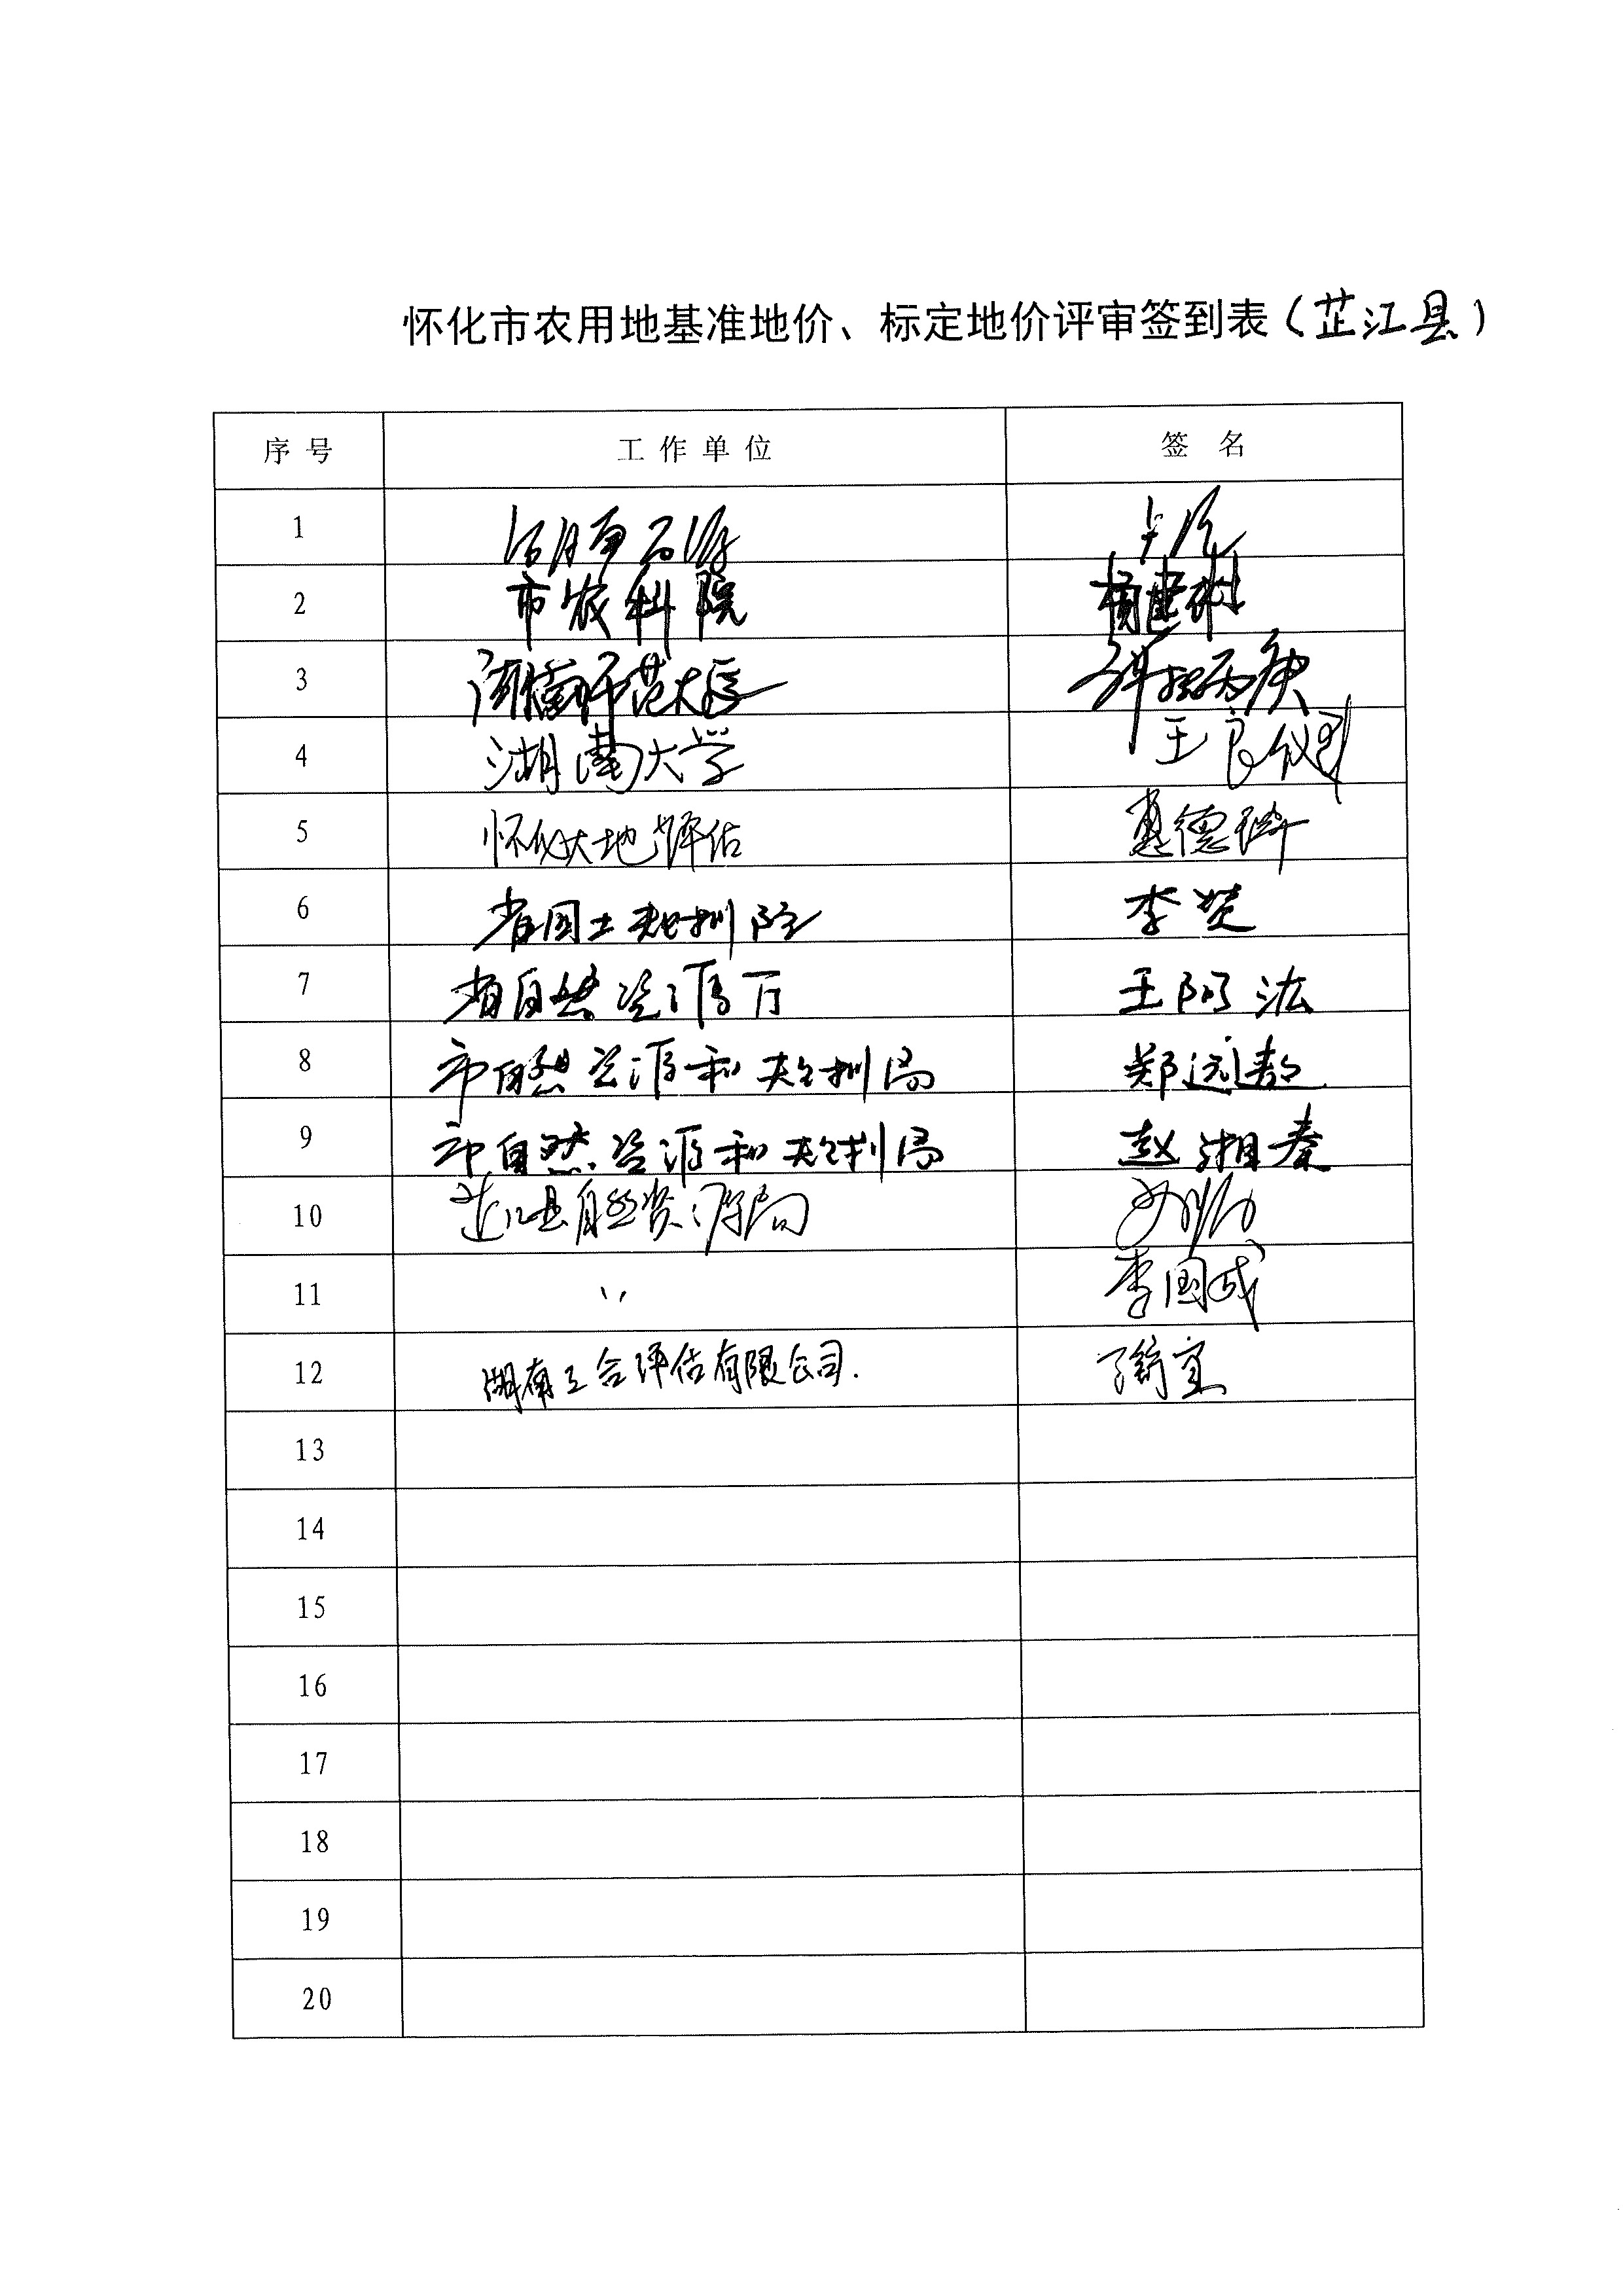 怀化市农用地基准地价、标定地价评审签到表(芷江县)
序号 工作单位 签名
1
2 市农科院 杨建彬
3 湖南师范大学
4 湖南大学 王良
5 怀化大地评估 德
6 省国土规划院 李赞
7 省自然资源厅 王阿法
8 市自然资源和规划局 郑远
9 市自然资源和规划局 赵湘秦
10 芷江县自然资源局
11 〃 李国成
12 湖南工合评估有限公司.
13
14
15
16
17
18
19
20